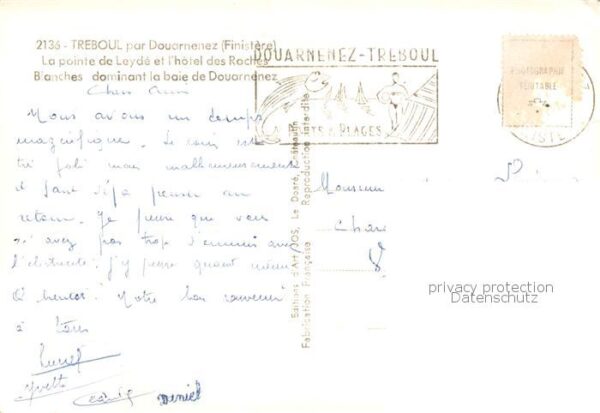 2136 - TREBOUL par Douarnenez (Finistère)
La pointe de Leydé et l'hôtel des Roches
Blanches dominant la baie de Douarnenez
DOUARNENEZ-TREBOUL
PLAGES
PHOTOGRAPHIE
VERITABLE
Chers Amis
Nous avons un temps
magnifique. Le coin est
très joli mais malheureusement
il faut déjà penser au
retour. Je pense que vous
n'avez pas trop d'ennuis avec
l'électricité. j'y pense quand même
A bientôt. Notre bon souvenir
à tous
Yvette
Deniel
Monsieur
Editions d'Art JOS, Le Doaré, Châteaulin
Fabrication Française Reproduction interdite
privacy protection
Datenschutz